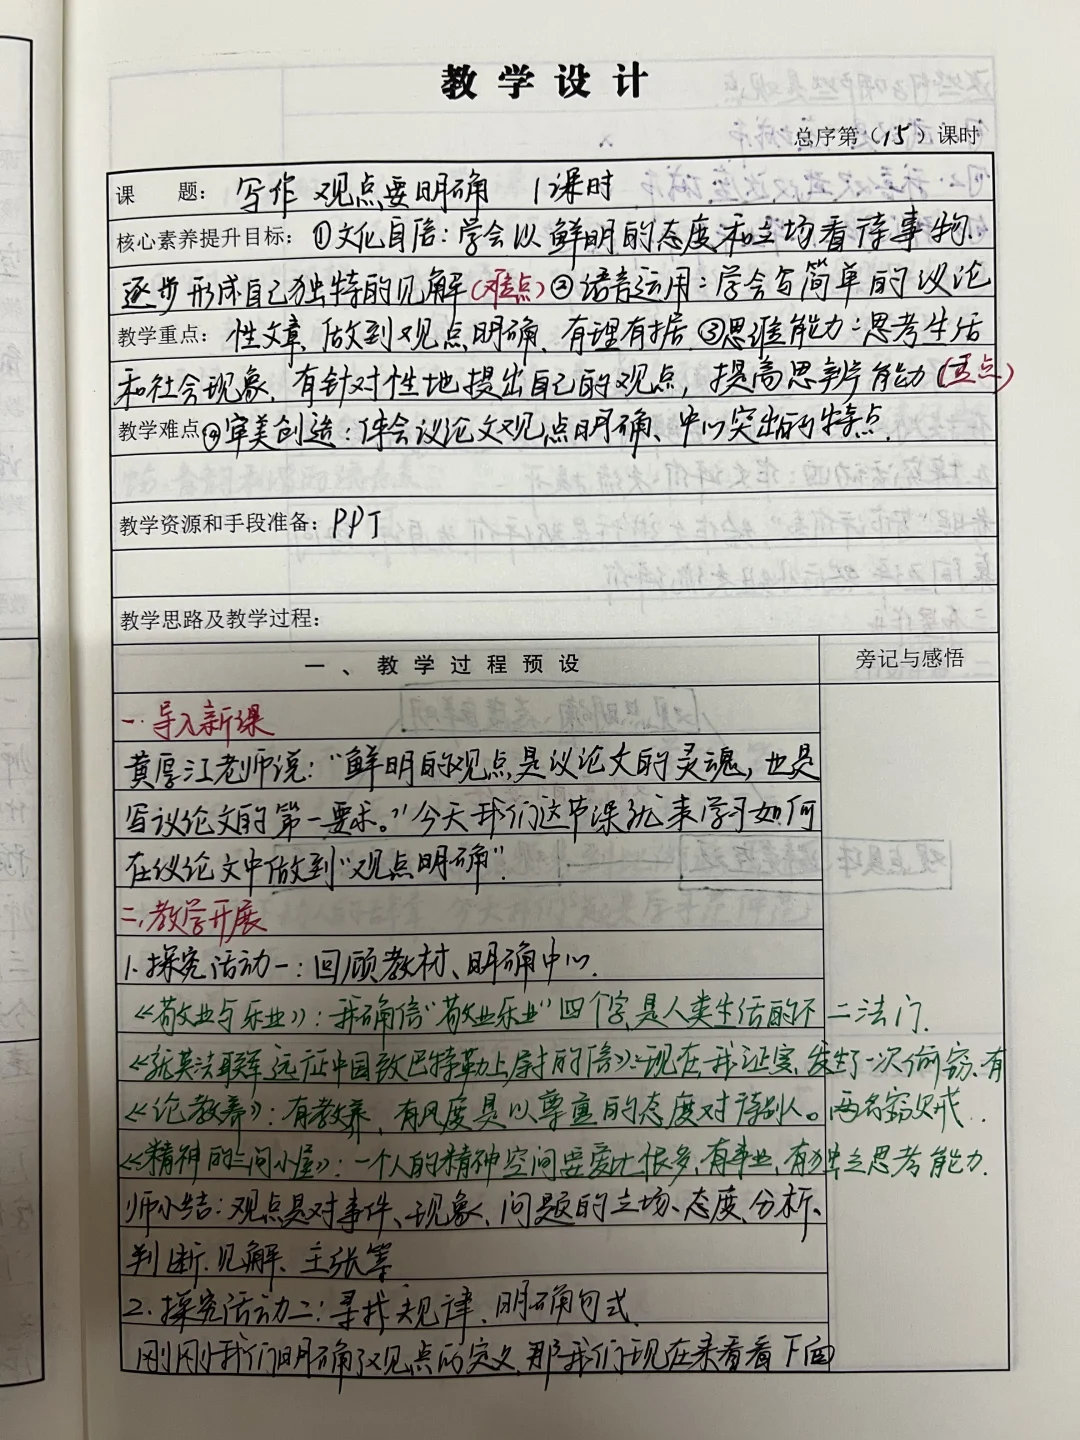 教学设计
总序第（15）课时
课　题：写作 观点要明确　1课时
核心素养提升目标：①文化自信：学会以鲜明的态度和立场看待事物、
逐步形成自己独特的见解(难点)②语言运用：学会写简单的议论
教学重点：性文章，做到观点明确、有理有据③思维能力：思考生活
和社会现象，有针对性地提出自己的观点，提高思辨能力(重点)
教学难点④审美创造：体会议论文观点明确、中心突出的特点.
教学资源和手段准备：PPT
教学思路及教学过程：
一、教学过程预设　旁记与感悟
一.导入新课
黄厚江老师说："鲜明的观点是议论文的灵魂，也是
写议论文的第一要求。"今天我们这节课就来学习如何
在议论文中做到"观点明确".
二.教学开展
1.探究活动一：回顾教材、明确中心.
《敬业与乐业》：我确信"敬业乐业"四个字，是人类生活的不二法门.
《就英法联军远征中国致巴特勒上尉的信》：现在，我证实，发生了一次偷窃，有
《论教养》：有教养、有风度是以尊重的态度对待别人。两名窃贼..
《精神的三间小屋》：一个人的精神空间要爱比恨多，有事业，有独立思考能力.
师小结：观点是对事件、现象、问题的立场、态度、分析、
判断、见解、主张等
2.探究活动二：寻找规律、明确句式.
刚刚我们明确了观点的定义，那我们现在来看看下面